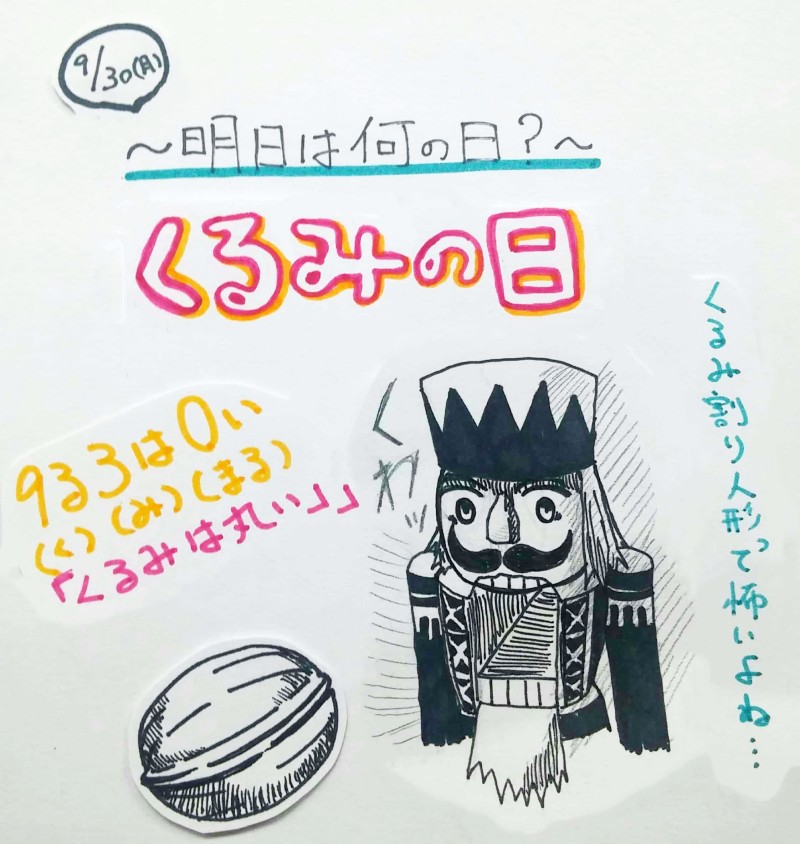 9/30(月)
～明日は何の日？～
くるみの日
9る3は0い
(く)(み)(まる)
「くるみは丸い」」
くわッ
くるみ割り人形って怖いよね…